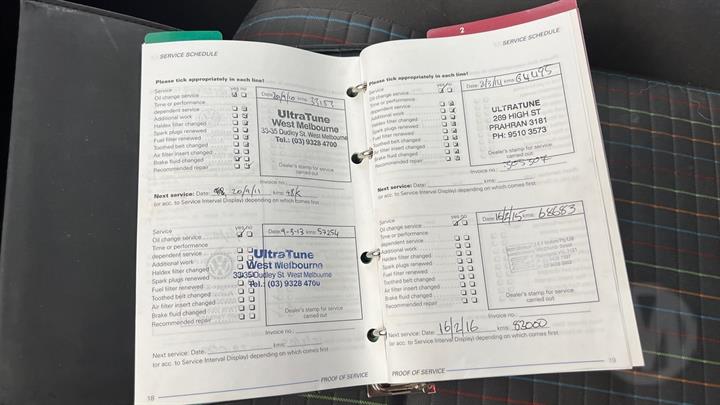 SERVICE SCHEDULE
Please tick appropriately in each line!
Service yes no
Oil change service
Time or performance
dependent service
Additional work
Haldex filter changed
Spark plugs renewed
Fuel filter renewed
Toothed belt changed
Air filter insert changed
Brake fluid changed
Recommended repair
Date 20/9/10 kms: 33153
UltraTune
West Melbourne
33-35 Dudley St. West Melbourne
Tel.: (03) 9328 4700
Dealer's stamp for service
carried out
Invoice no.
Next service: Date: 20/9/11 kms: 48K
(or acc. to Service Interval Display) depending on which comes first
Service yes no
Oil change service
Time or performance
dependent service
Additional work
Haldex filter changed
Spark plugs renewed
Fuel filter renewed
Toothed belt changed
Air filter insert changed
Brake fluid changed
Recommended repair
Date 9-3-13 kms: 57254
UltraTune
West Melbourne
33-35 Dudley St. West Melbourne
Tel.: (03) 9328 4700
Dealer's stamp for service
carried out
Invoice no.
Next service: Date: kms:
(or acc. to Service Interval Display) depending on which comes first
PROOF OF SERVICE
18
2
SERVICE SCHEDULE
Please tick appropriately in each line!
Service yes no
Oil change service
Time or performance
dependent service
Additional work
Haldex filter changed
Spark plugs renewed
Fuel filter renewed
Toothed belt changed
Air filter insert changed
Brake fluid changed
Recommended repair
Date 2/3/14 kms: 64495
ULTRATUNE
269 HIGH ST
PRAHRAN 3181
PH: 9510 3573
Dealer's stamp for service
carried out
Invoice no.
Next service: Date: kms:
(or acc. to Service Interval Display) depending on which comes first
Service yes no
Oil change service
Time or performance
dependent service
Additional work
Haldex filter changed
Spark plugs renewed
Fuel filter renewed
Toothed belt changed
Air filter insert changed
Brake fluid changed
Recommended repair
Date 16/2/15 kms: 68683
Dealer's stamp for service
carried out
Invoice no.
Next service: Date: 16/2/16 kms: 83000
(or acc. to Service Interval Display) depending on which comes first
PROOF OF SERVICE
19